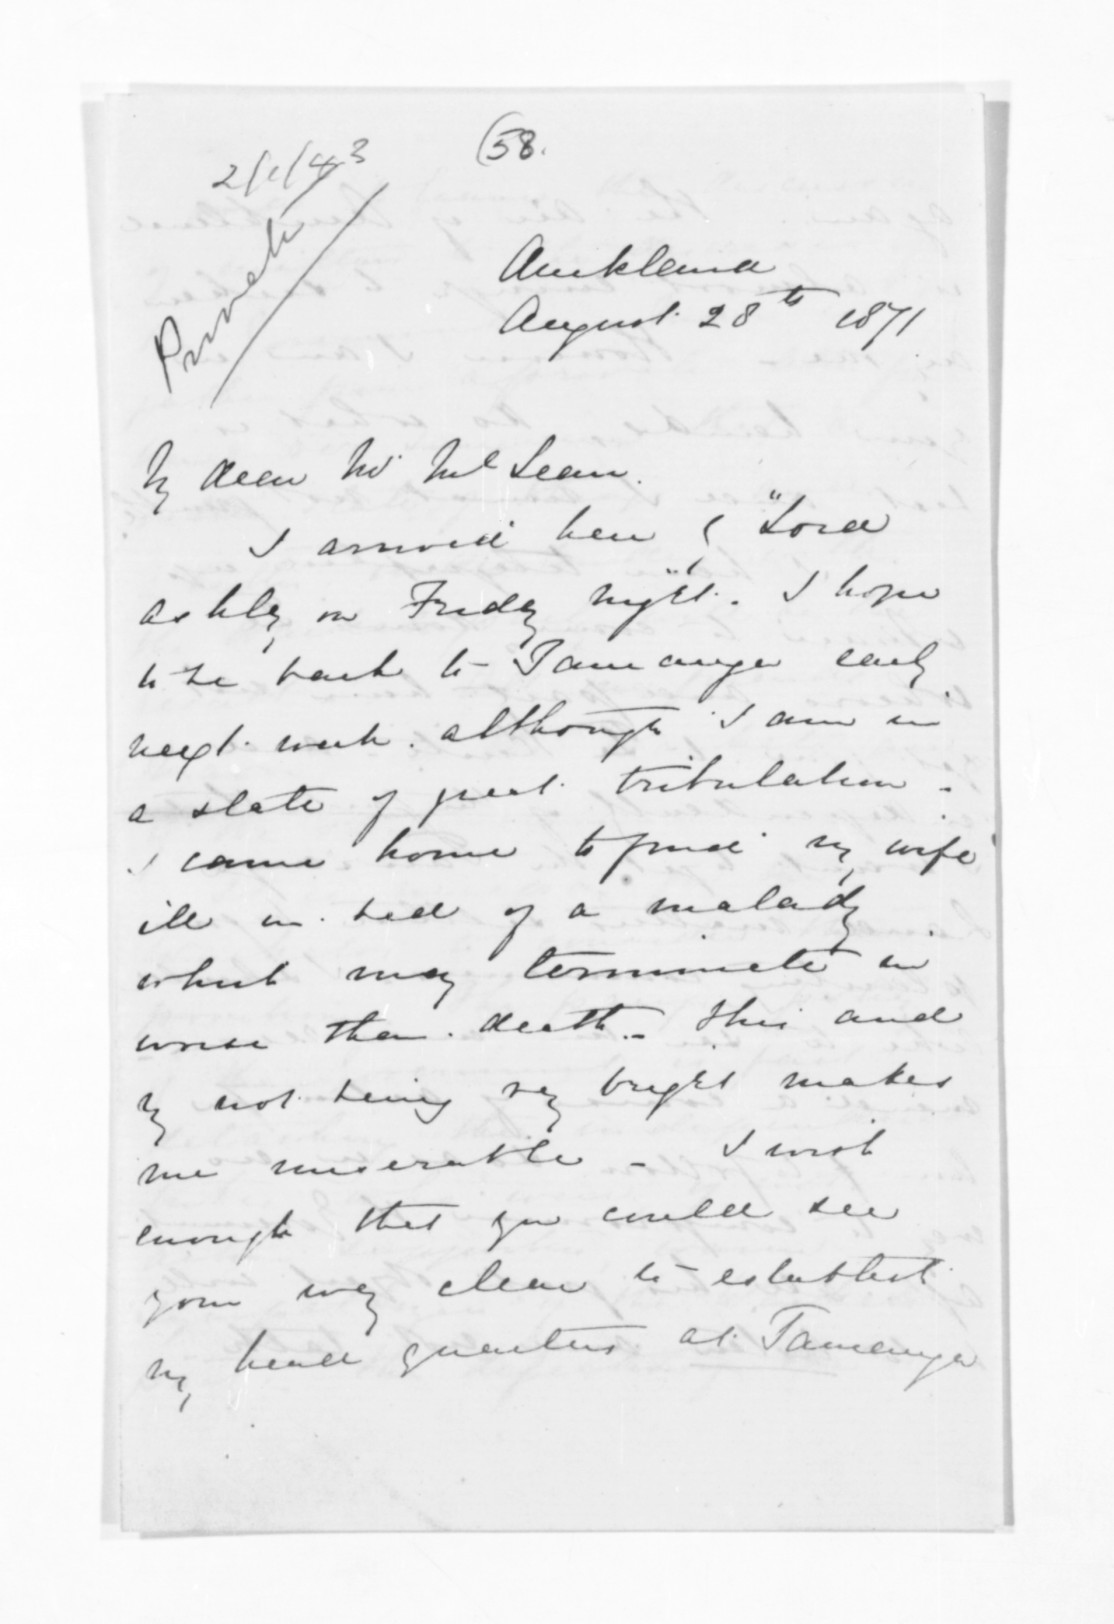 (58.
2/1/43
Private
Auckland
August 28th 1871
My dear Mr McLean.
I arrived here by "Lord
Ashley" on Friday night. I hope
to be back to Tauranga early
next week. although I am in
a state of great tribulation -
I came home to find my wife
ill in bed of a malady
which may terminate in
worse than death - this and
my not being very bright makes
me miserable - I wish
enough that you could see
your way clear to establish
my head quarters at Tauranga